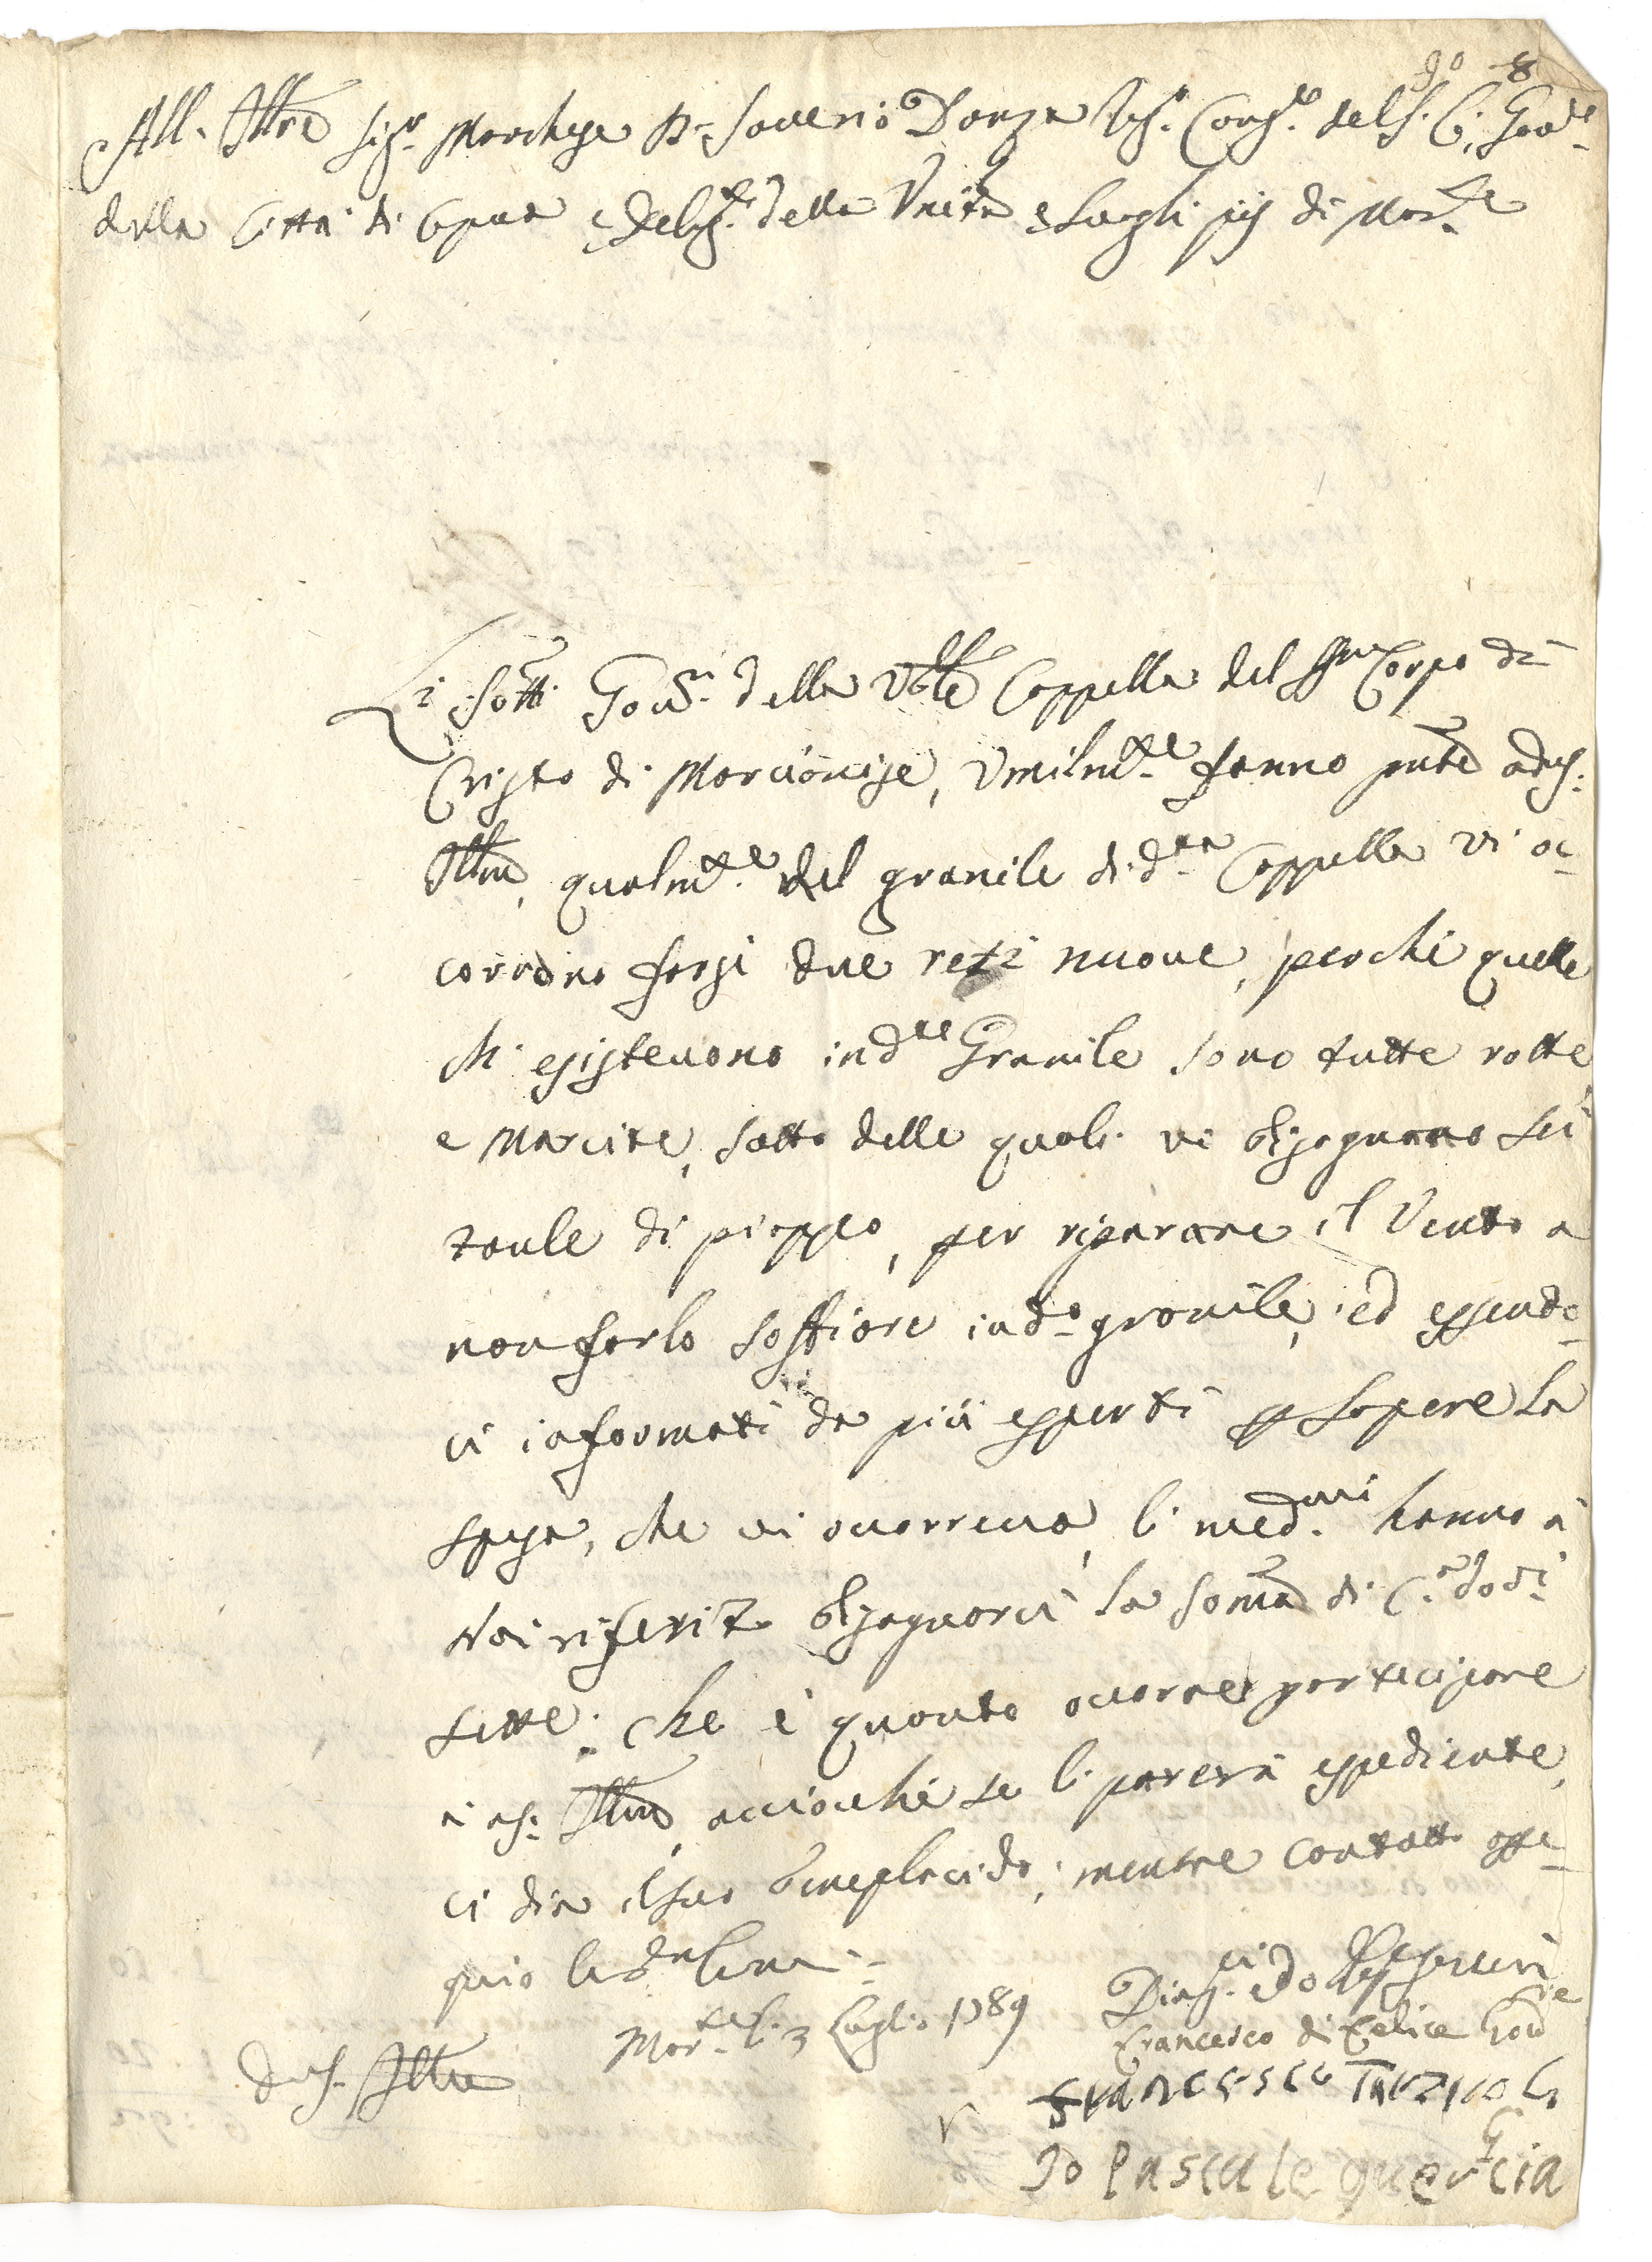 8
All. Ill.re Sig.r Marchese D. Saverio Danza Reg.o Cons.o del S. C. Gov.re
della Città di Capua e Deleg.to della Vnità e Luoghi pij di Mar.se
Li sotti Gov.ri della V.ble Cappella del SS.mo Corpo di
Cristo di Marcianise, Vmilm.te fanno pnte ad V.S.
Ill.ma, qualm.te del granile di d.ta Cappella vi oc-
corrono forsi due reti nuove, perche quelle
ch' esistevono in d.to Granile sono tutte rotte
e marcite, sotto delle quali vi bisognano sei
tavle di pioppo, per riparare il Vento a
non farlo soffiare in d.o granile, ed essendo-
ci informati da più esperti p sapere la
spesa, che vi occorreva, li med.mi hanno à
Noi riferito bisognarci la somma di C.a dodi
sette: che è quanto occorre participare
à V.S. Ill.ma, acciocchè se li parerà espediente,
ci dia il suo beneplacido; mentre contutto osse-
quio
Mar.se li 3 Luglio 1789
Di V.S. Ill.ma
Francesco di Felice Gov.re
Francesco Tartaglio G.
Io Pascale Quercia G